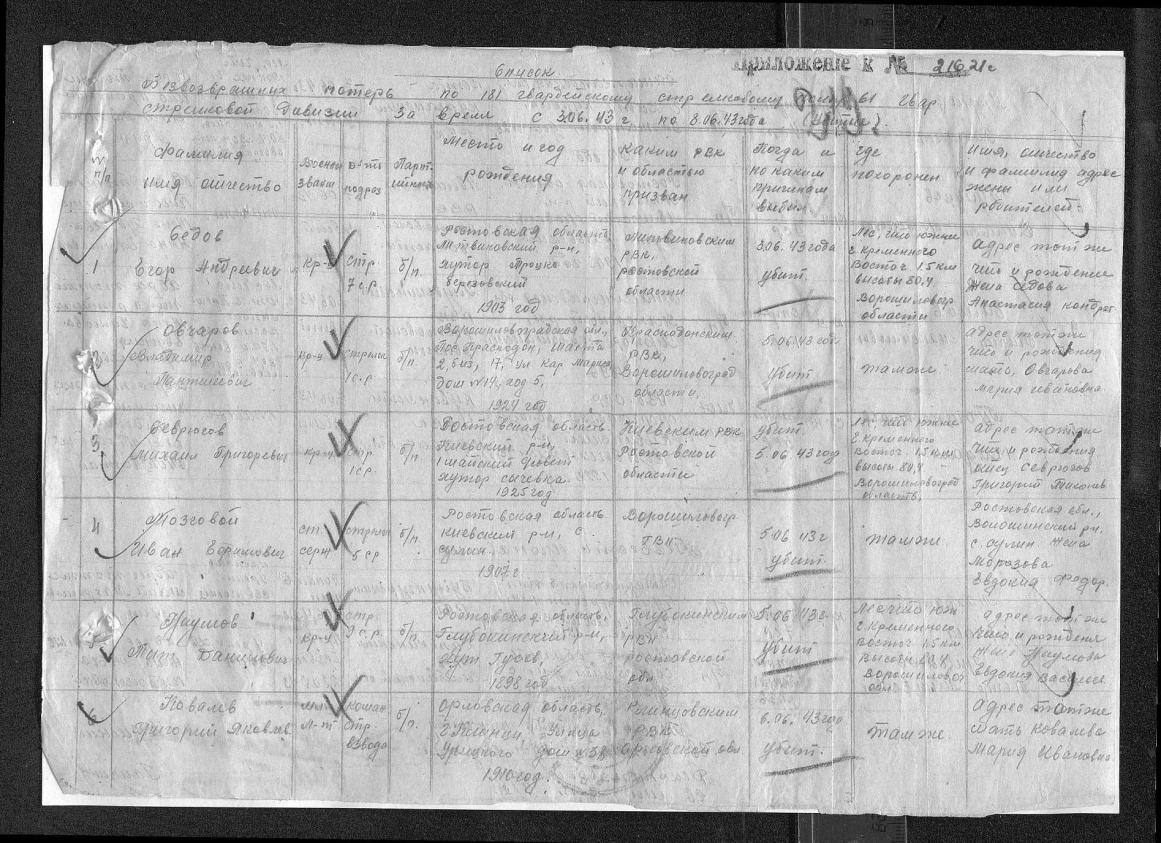 Приложение к № 21621с
Список
Безвозвратных потерь по 181 гвардейскому стрелковому полку 61 гвар
стрелковой дивизии за время с 3.06.43 г по 8.06.43 года
№ п/п
Фамилия
имя отчество
Военн звание
Парт
Место и год
рождения
Каким РВК
и областью
призван
Когда и
по каким
причинам
выбыл
где
похоронен
Имя, отчество
и фамилия адрес
жены или
родителей
1
Седов
Егор Андреевич
Кр-ц
стр
7 с.р.
б/п.
Ростовская область
р-н,
хутор
1903 год
РВК,
ростовской
области
3.06.43 года
убит
Лес, что южнее
г Кременного
Восточ 1.5 км
высоты 80.4
Ворошиловогр
области
адрес тот же
что и рождение
жена Седова
Анастасия Кондрат
2
Овчаров
Владимир
Кр-ц
стрелок
1 с.р.
б/п.
Ворошиловградская обл,
пос Краснодон, шахта
дом №14,
1924 год
Краснодонским
РВК,
Ворошиловоград
области,
5.06.43 год
убит
там же
адрес тот же
что и рождения
мать, Овчарова
Мария Ивановна
3
Севрюгов
Михаил Григоревич
кр-ц
стр
1 ср.
б/п
Ростовская область
Киевский р-н,
хутор
1925 год
Киевским РВК
Ростовской
области
убит
5.06.43 год
Лес, что южнее
г Кременного
восточ. 1.5 км
высоты 80.4
Ворошиловоград
область
адрес тот же
что и рождения
отец Севрюгов
Григорий
4
Мозговой
Иван Ефимович
ст.
серж
5 ср
б/п.
Ростовская область
Киевский р-н, с.
1907 г
Ворошиловогр
ГВК
5.06 43 г
убит.
там же
Ростовская обл.,
Волошинский р-н.
с. Сулин. Жена
Морозова
Евдокия Федор.
5
Наумов
Тит Данилович
кр-ц
стр.
с.р.
б/п.
Ростовская область,
Глубокинский р-н,
хут Гусев,
1898 год
Глубокинским
РВК
ростовской
обл
5.06.43 г.
убит
Лес что юж
г Кременного
Восточ 1.5 км
высоты 80.4
Ворошиловогр
обл
адрес тот же
что и рождени
жена Наумова
Евдокия Василев
6
Ковалев
Григорий Яковлев
мл.
л-т
коман
стр.
взвода
б/п.
Орловская область,
Урицкого дом № 38
1910 год.
РВК
Орловской обл
6.06.43 год
убит.
там же
Адрес тот же
Мать Ковалева
Мария Ивановна